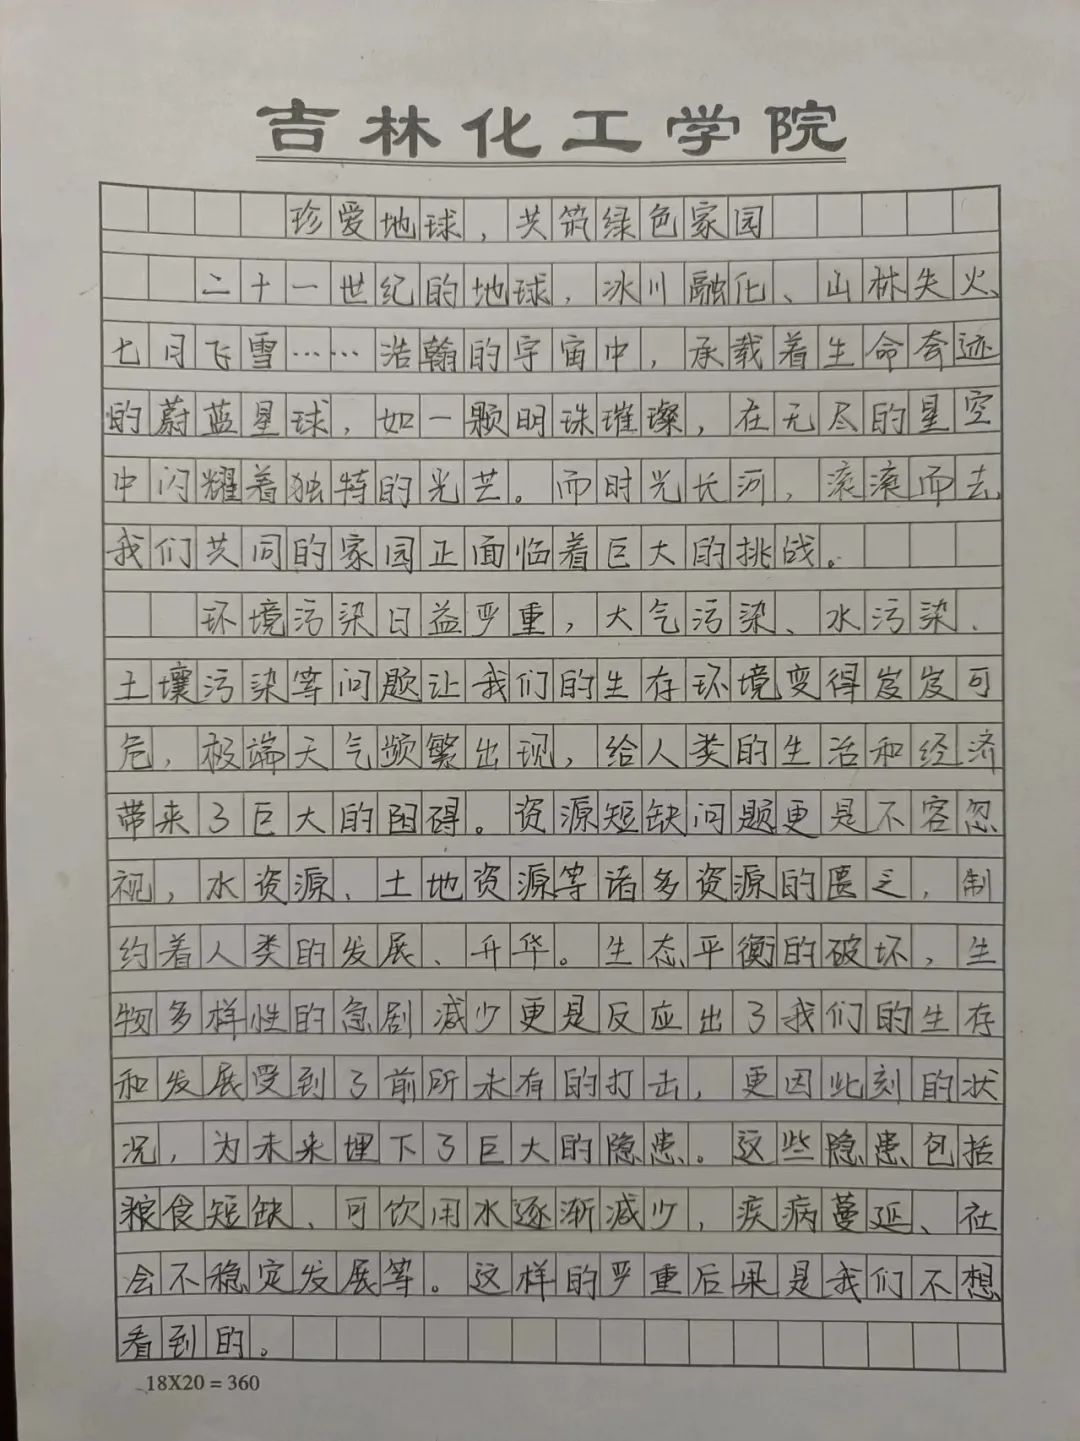 吉林化工学院
珍爱地球，共筑绿色家园
二十一世纪的地球，冰川融化、山林失火、
七月飞雪……浩翰的宇宙中，承载着生命奇迹
的蔚蓝星球，如一颗明珠璀璨，在无尽的星空
中闪耀着独特的光芒。而时光长河，滚滚而去
我们共同的家园正面临着巨大的挑战。
环境污染日益严重，大气污染、水污染、
土壤污染等问题让我们的生存环境变得岌岌可
危，极端天气频繁出现，给人类的生活和经济
带来了巨大的困碍。资源短缺问题更是不容忽
视，水资源、土地资源等诸多资源的匮乏，制
约着人类的发展、升华。生态平衡的破坏，生
物多样性的急剧减少更是反应出了我们的生存
和发展受到了前所未有的打击，更因此刻的状
况，为未来埋下了巨大的隐患。这些隐患包括
粮食短缺、可饮用水逐渐减少，疾病蔓延、社
会不稳定发展等。这样的严重后果是我们不想
看到的。
18X20=360